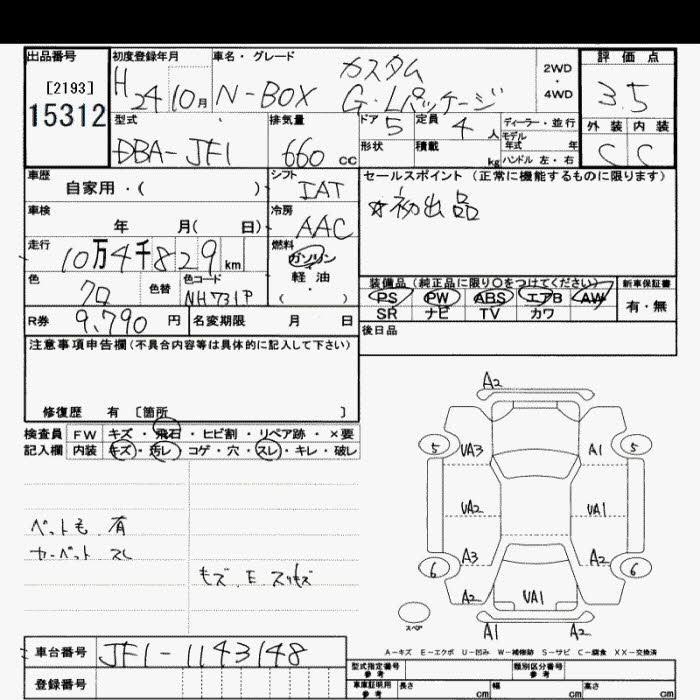 出品番号 初度登録年月 車名・グレード 評価点
[2193] H24 10月 N-BOX カスタム G・Lパッケージ 2WD・4WD 3.5
15312
型式 排気量 ドア 5 定員 4人 ディーラー・並行 外装 内装
DBA-JF1 660cc 形状 積載 kg モデル年式 年 C C
ハンドル 左・右
車歴 シフト セールスポイント(正常に機能するものに限ります)
自家用・( ) IAT ☆初出品
車検 年 月( 日) 冷房 AAC
走行 10万4千829km 燃料 ガソリン
軽油
( ・ )
色 クロ 色替 色コード NH731P
装備品(純正品に限り○をつけてください) 新車保証書
PS PW ABS エアB AW 有・無
SR ナビ TV カワ
R券 9,790円 名変期限 月 日 後日品
注意事項申告欄(不具合内容等は具体的に記入して下さい)
修復歴 有 〔箇所 〕
検査員 FW キズ・飛石・ヒビ割・リペア跡・×要
記入欄 内装 キズ・汚レ・コゲ・穴・スレ・キレ・破レ
ペット毛 有
カーペット スレ
A2
5 UA3 A1 5
UA2 UA1
6 A3 A2 6
A2 UA1
スペア
A1 A2
A-キズ E-エクボ U-凹み W-補修跡 S-サビ C-腐食 XX-交換済
車台番号 JF1-1143148
登録番号
型式指定番号 参考 類別区分番号 参考
車庫証明用 参考 長さ cm 幅 cm 高さ cm